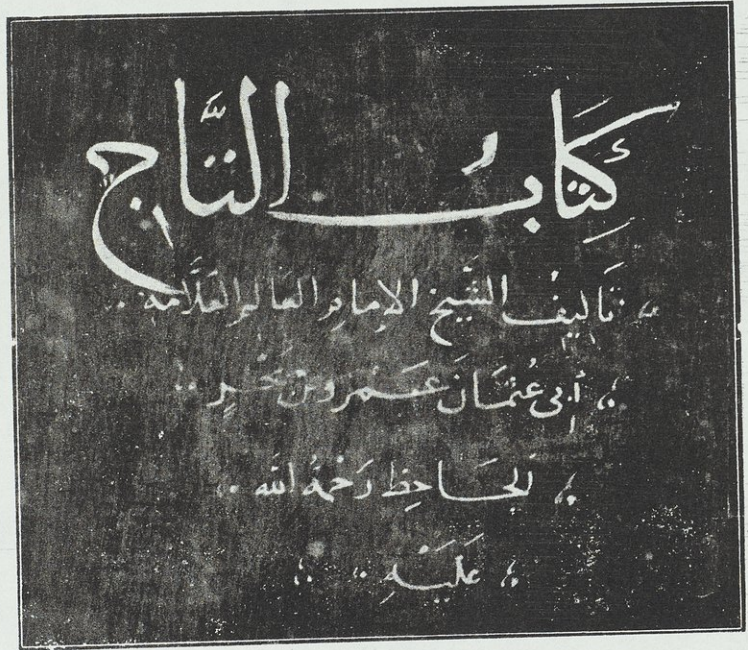 كِتَابُ التَّاج
تَاليفْ الشَّيخ الإمام العَالم العَلَّامه
أبى عُثمَانَ عَمْرو بن بَحْرٍ
الجَاحِظ رَحْمَةُ الله
عَلَيْهِ